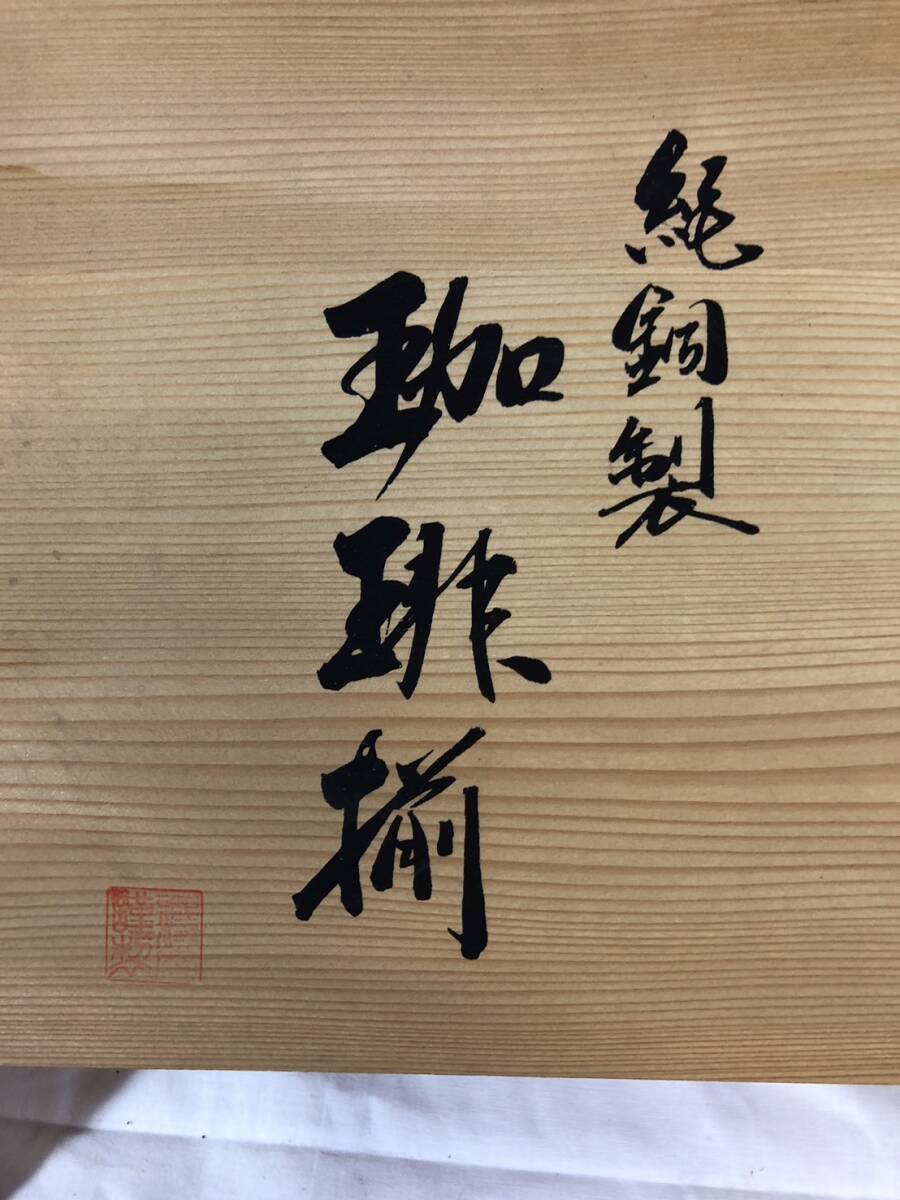 純銅製
珈琲揃